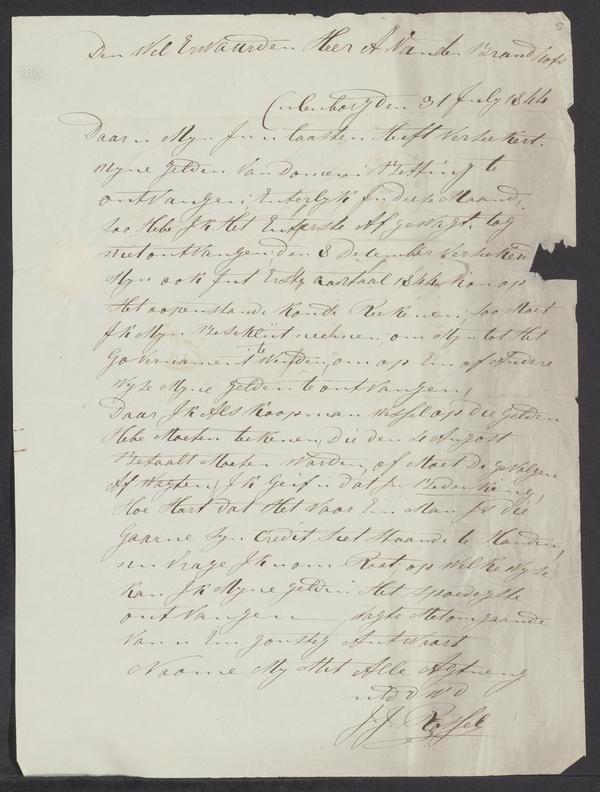 Den Wel Erwaarden Heer A Van den Brand
Culenborg den 31 July 1844
Daar u Myn In u laasten Heeft Versekert.
Myne gelden Van Domein te
ontVangen; Enterlyk In diese Maand,
Soo Hebe Ik Het Eersste Afgewagt. tog
niet ontVangen, den 8 December
Myn ook Int Erste 1844 kon op
Het oopenstande konde Reekenen, Soo Moet
Ik Myn Beseluit neehmen om Myn tot Het
Governament te Winden, om op Een of Andere
Wyse Myne gelden te ontVangen,
Daar Ik Als koopman Wissel op die gelden
Hebe Moeten tekenen, die den 4 Augost
Betaalt Moeten Worden, of Moet De geVolgen
AfWagten, Ik geif u dat In Bedenking,
Hoe Hart dat Het Voor Een Man Is die
gaarne Syn Credit Siet Staande te Houden,
nu Vrage Ik u om Raat, op Welke Wyse
kan Ik Myne gelden Het Spoedigste
ontVangen Wagte Metomgaande
Van u Een gonstig AntWoort
Noome My Met Alle Agtneng
J. J. Rossel